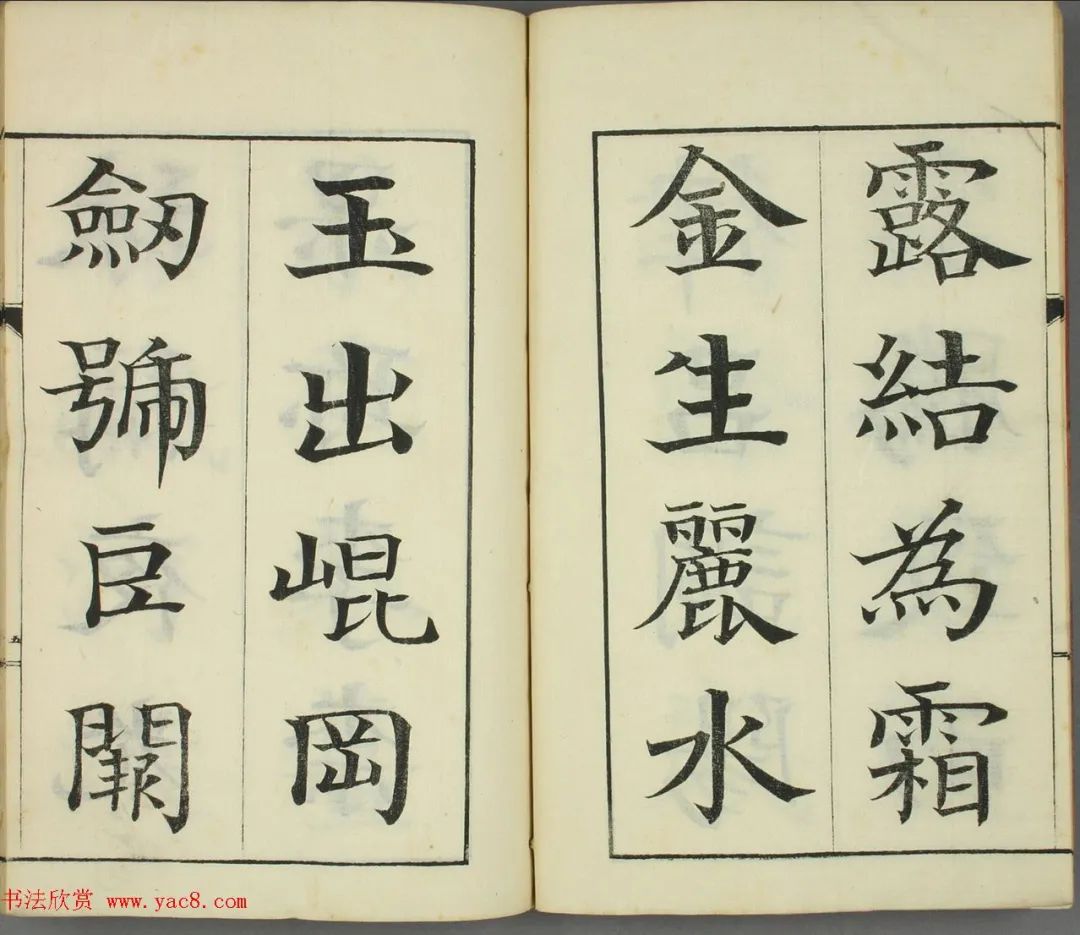 露結為霜
金生麗水
玉出崐岡
劒號巨闕
五
书法欣赏 www.yac8.com